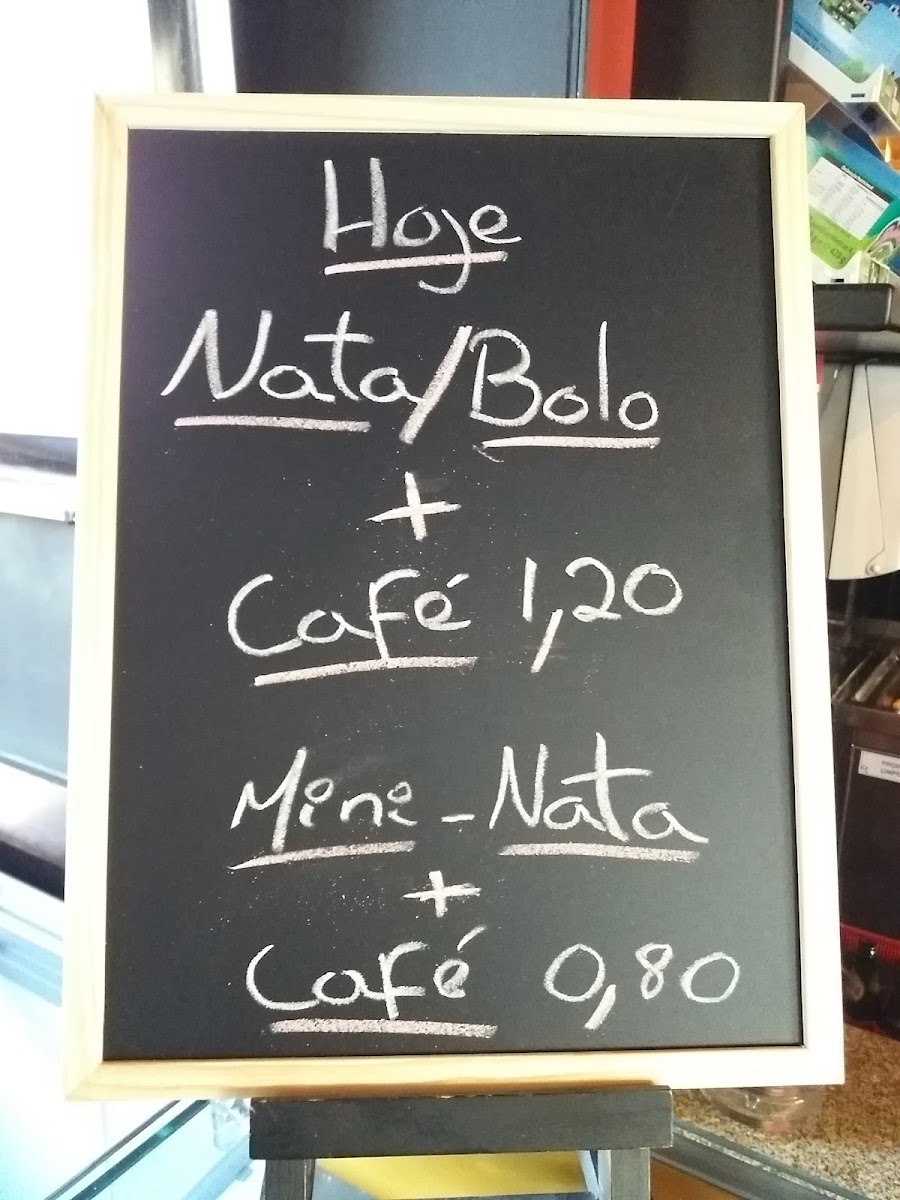 Hoje
Nata/Bolo
+
Café 1,20
Mini-Nata
+
Café 0,80